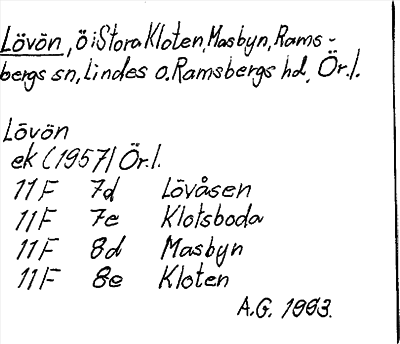 Lövön, ö i Stora Kloten, Masbyn, Rams-
bergs sn, Lindes o. Ramsbergs hd, Ör.l.
Lövön
ek (1957) Ör.l.
11F 7d Lövåsen
11F 7e Klotsboda
11F 8d Masbyn
11F 8e Kloten
A.G. 1993.